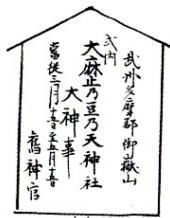 武州多摩郡御嶽山
式内
大麻止乃豆乃天神社
大神事
當従三月十五日至五月十五日
舊神官